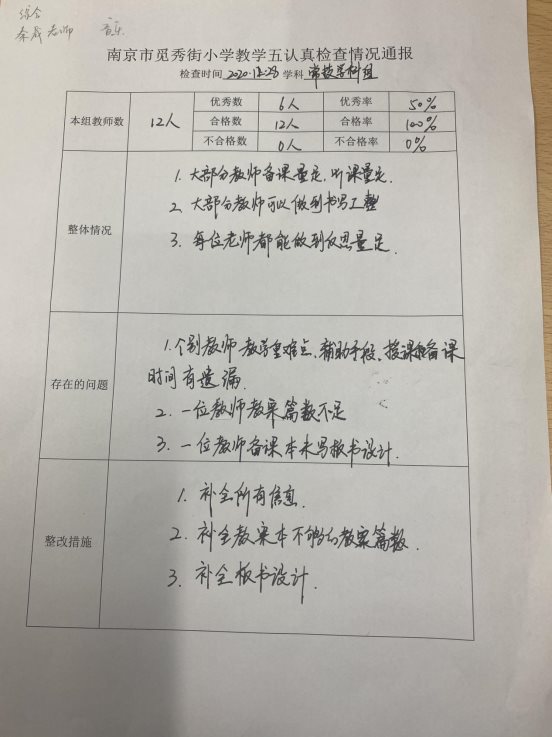 综合
老师 音乐
南京市觅秀街小学教学五认真检查情况通报
检查时间 2020.12.28 学科 常技学科组
本组教师数 12人 优秀数 6人 优秀率 50%
合格数 12人 合格率 100%
不合格数 0人 不合格率 0%
整体情况
1. 大部分教师备课量足,听课量足.
2. 大部分教师可以做到书写工整
3. 每位老师都能做到反思量足.
存在的问题
1.个别教师教学重难点、辅助手段、授课和备课
时间有遗漏.
2. 一位教师教案篇数不足
3. 一位教师备课本未写板书设计.
整改措施
1. 补全所有信息.
2. 补全教案本不够的教案篇数.
3. 补全板书设计.